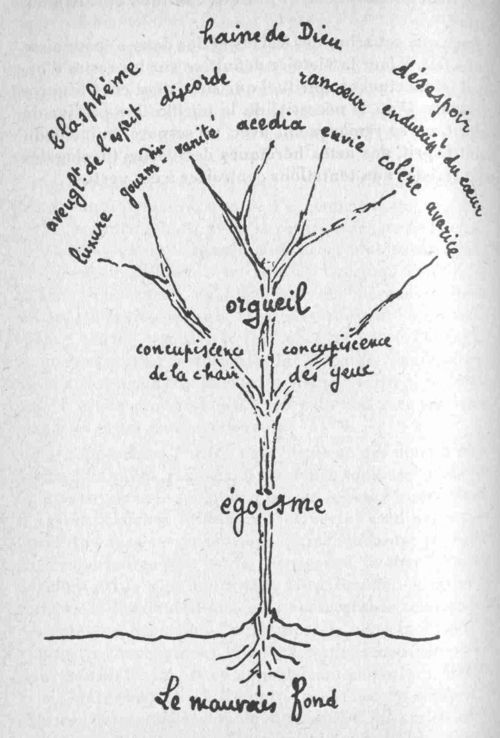 haine de Dieu
blasphème
discorde
rancoeur
désespoir
aveuglt. de l'esprit
endurcist. du cœur
luxure
gourmdise
vanité
acedia
envie
colère
avarice
orgueil
concupiscence
de la chair
concupiscence
des yeux
égoïsme
Le mauvais fond